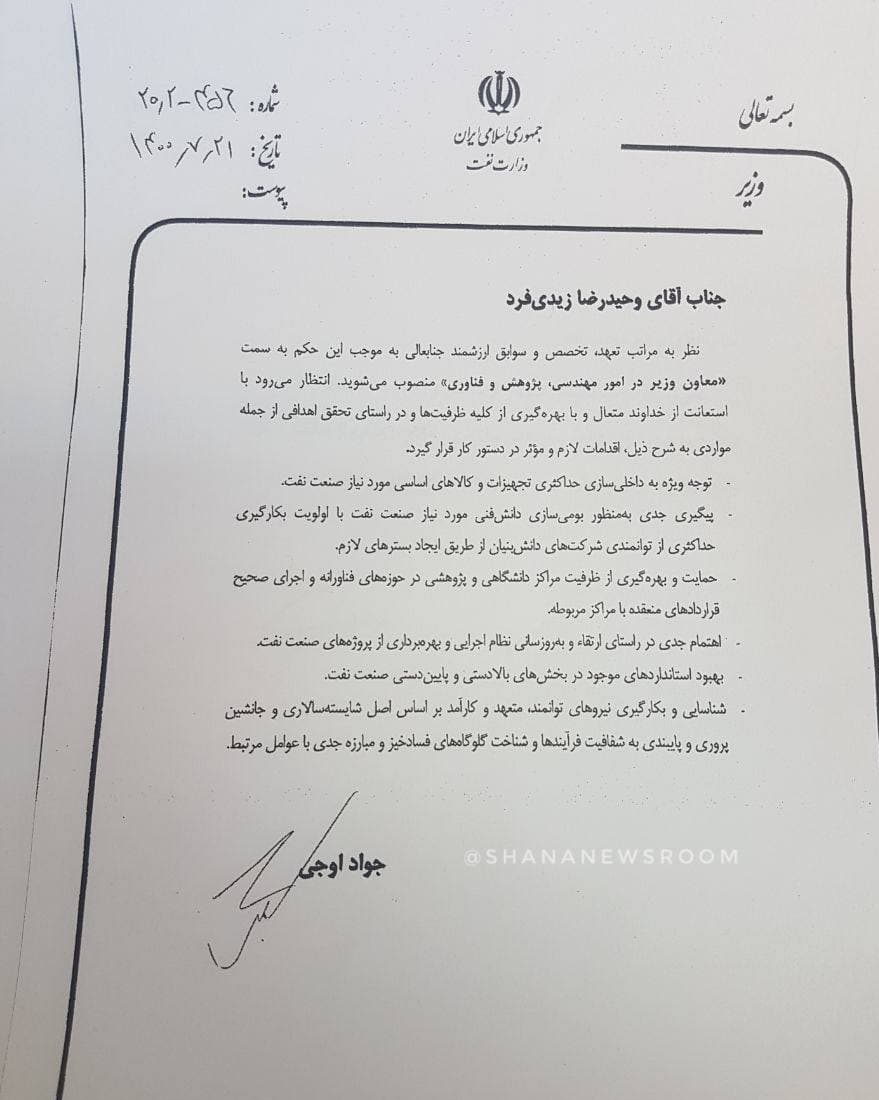 بسمه تعالی
جمهوری اسلامی ایران
وزارت نفت
وزیر
شماره: ۲۰٫۲-۴۵۶
تاریخ: ۱۴۰۰٫۷٫۲۱
پیوست:
جناب آقای وحیدرضا زیدی‌فرد
نظر به مراتب تعهد، تخصص و سوابق ارزشمند جنابعالی به موجب این حکم به سمت
«معاون وزیر در امور مهندسی، پژوهش و فناوری» منصوب می‌شوید. انتظار می‌رود با
استعانت از خداوند متعال و با بهره‌گیری از کلیه ظرفیت‌ها و در راستای تحقق اهدافی از جمله
مواردی به شرح ذیل، اقدامات لازم و مؤثر در دستور کار قرار گیرد.
- توجه ویژه به داخلی‌سازی حداکثری تجهیزات و کالاهای اساسی مورد نیاز صنعت نفت.
- پیگیری جدی به‌منظور بومی‌سازی دانش‌فنی مورد نیاز صنعت نفت با اولویت بکارگیری
حداکثری از توانمندی شرکت‌های دانش‌بنیان از طریق ایجاد بسترهای لازم.
- حمایت و بهره‌گیری از ظرفیت مراکز دانشگاهی و پژوهشی در حوزه‌های فناورانه و اجرای صحیح
قراردادهای منعقده با مراکز مربوطه.
- اهتمام جدی در راستای ارتقاء و به‌روزسانی نظام اجرایی و بهره‌برداری از پروژه‌های صنعت نفت.
- بهبود استانداردهای موجود در بخش‌های بالادستی و پایین‌دستی صنعت نفت.
- شناسایی و بکارگیری نیروهای توانمند، متعهد و کارآمد بر اساس اصل شایسته‌سالاری و جانشین
پروری و پایبندی به شفافیت فرآیندها و شناخت گلوگاه‌های فسادخیز و مبارزه جدی با عوامل مرتبط.
جواد اوجی
@SHANANEWSROOM